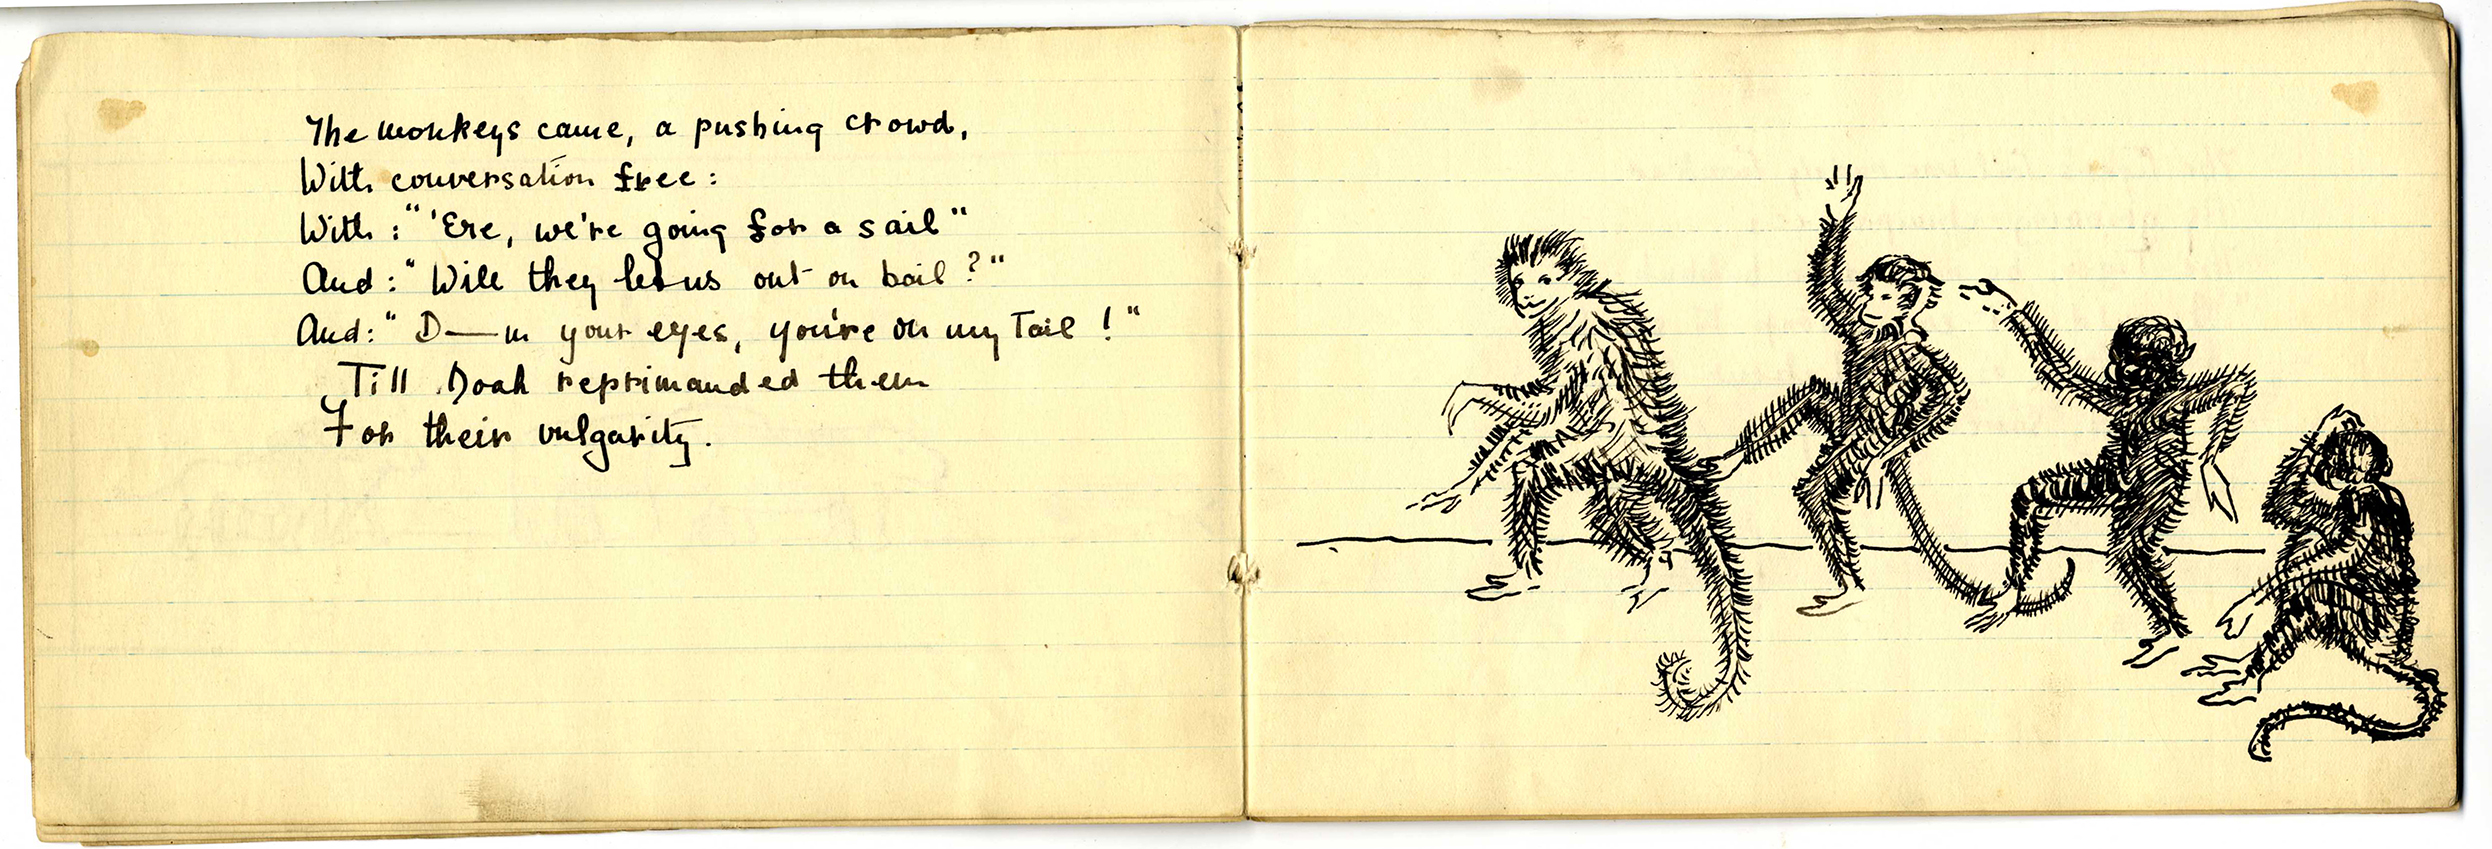 The monkeys came, a pushing crowd,
With conversation free:
With: "'Ere, we're going for a sail"
And: "Will they let us out on bail?"
And: "D—m your eyes, you're on my Tail!"
Till Noah reprimanded them
For their vulgarity.